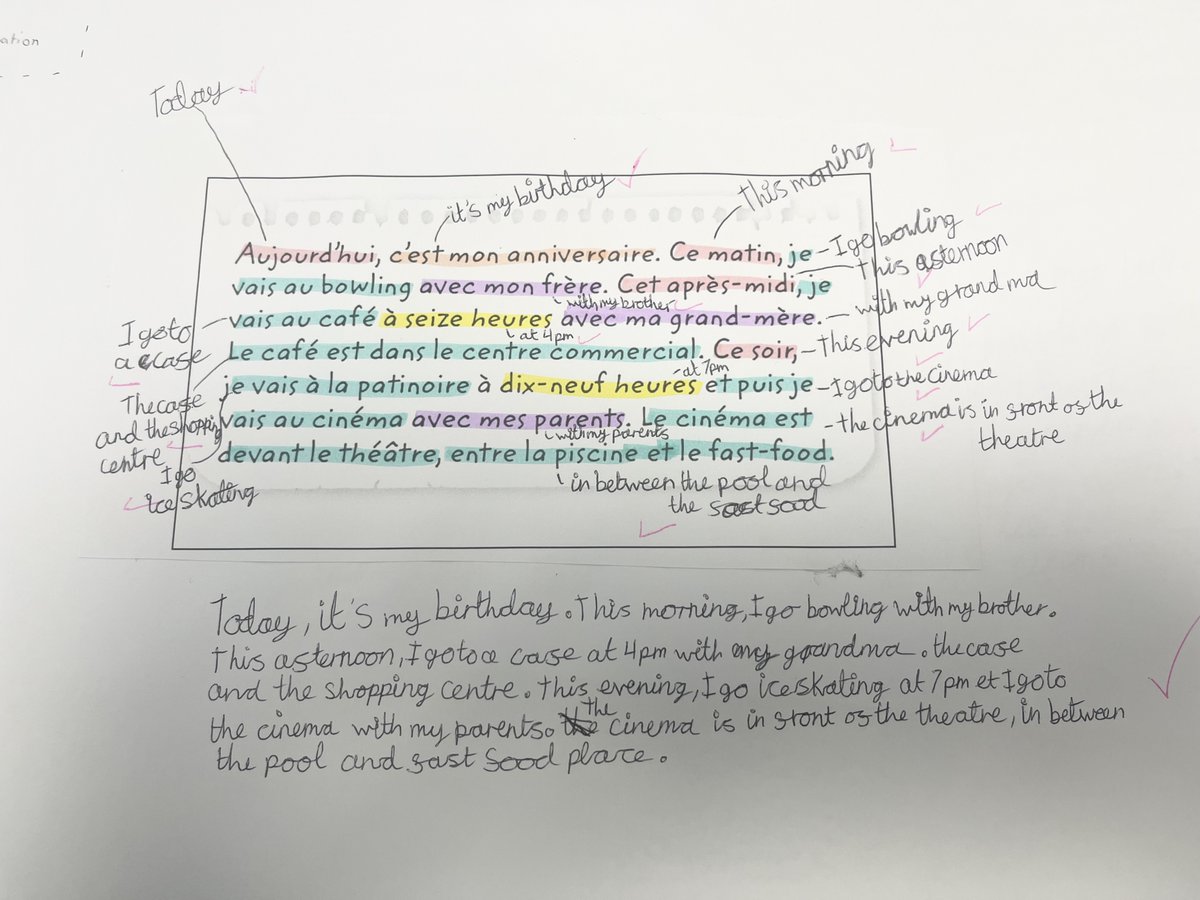 ation
Today
it's my birthday
this morning
Aujourd'hui, c'est mon anniversaire. Ce matin, je
I go bowling
this afternoon
vais au bowling avec mon frère. Cet après-midi, je
with my brother
with my grandma
I go to
a cafe
vais au café à seize heures avec ma grand-mère.
at 4pm
this evening
Le café est dans le centre commercial. Ce soir,
at 7pm
The cafe
and the shopping
centre
je vais à la patinoire à dix-neuf heures et puis je
I go to the cinema
vais au cinéma avec mes parents. Le cinéma est
with my parents
the cinema is in front of the
theatre
devant le théâtre, entre la piscine et le fast-food.
I go
ice skating
in between the pool and
the fast food
Today, it's my birthday. This morning, I go bowling with my brother.
This afternoon, I go to a cafe at 4pm with my grandma. the cafe
and the shopping centre. This evening, I go ice skating at 7pm et I go to
the cinema with my parents. the cinema is in front of the theatre, in between
the pool and fast food place.